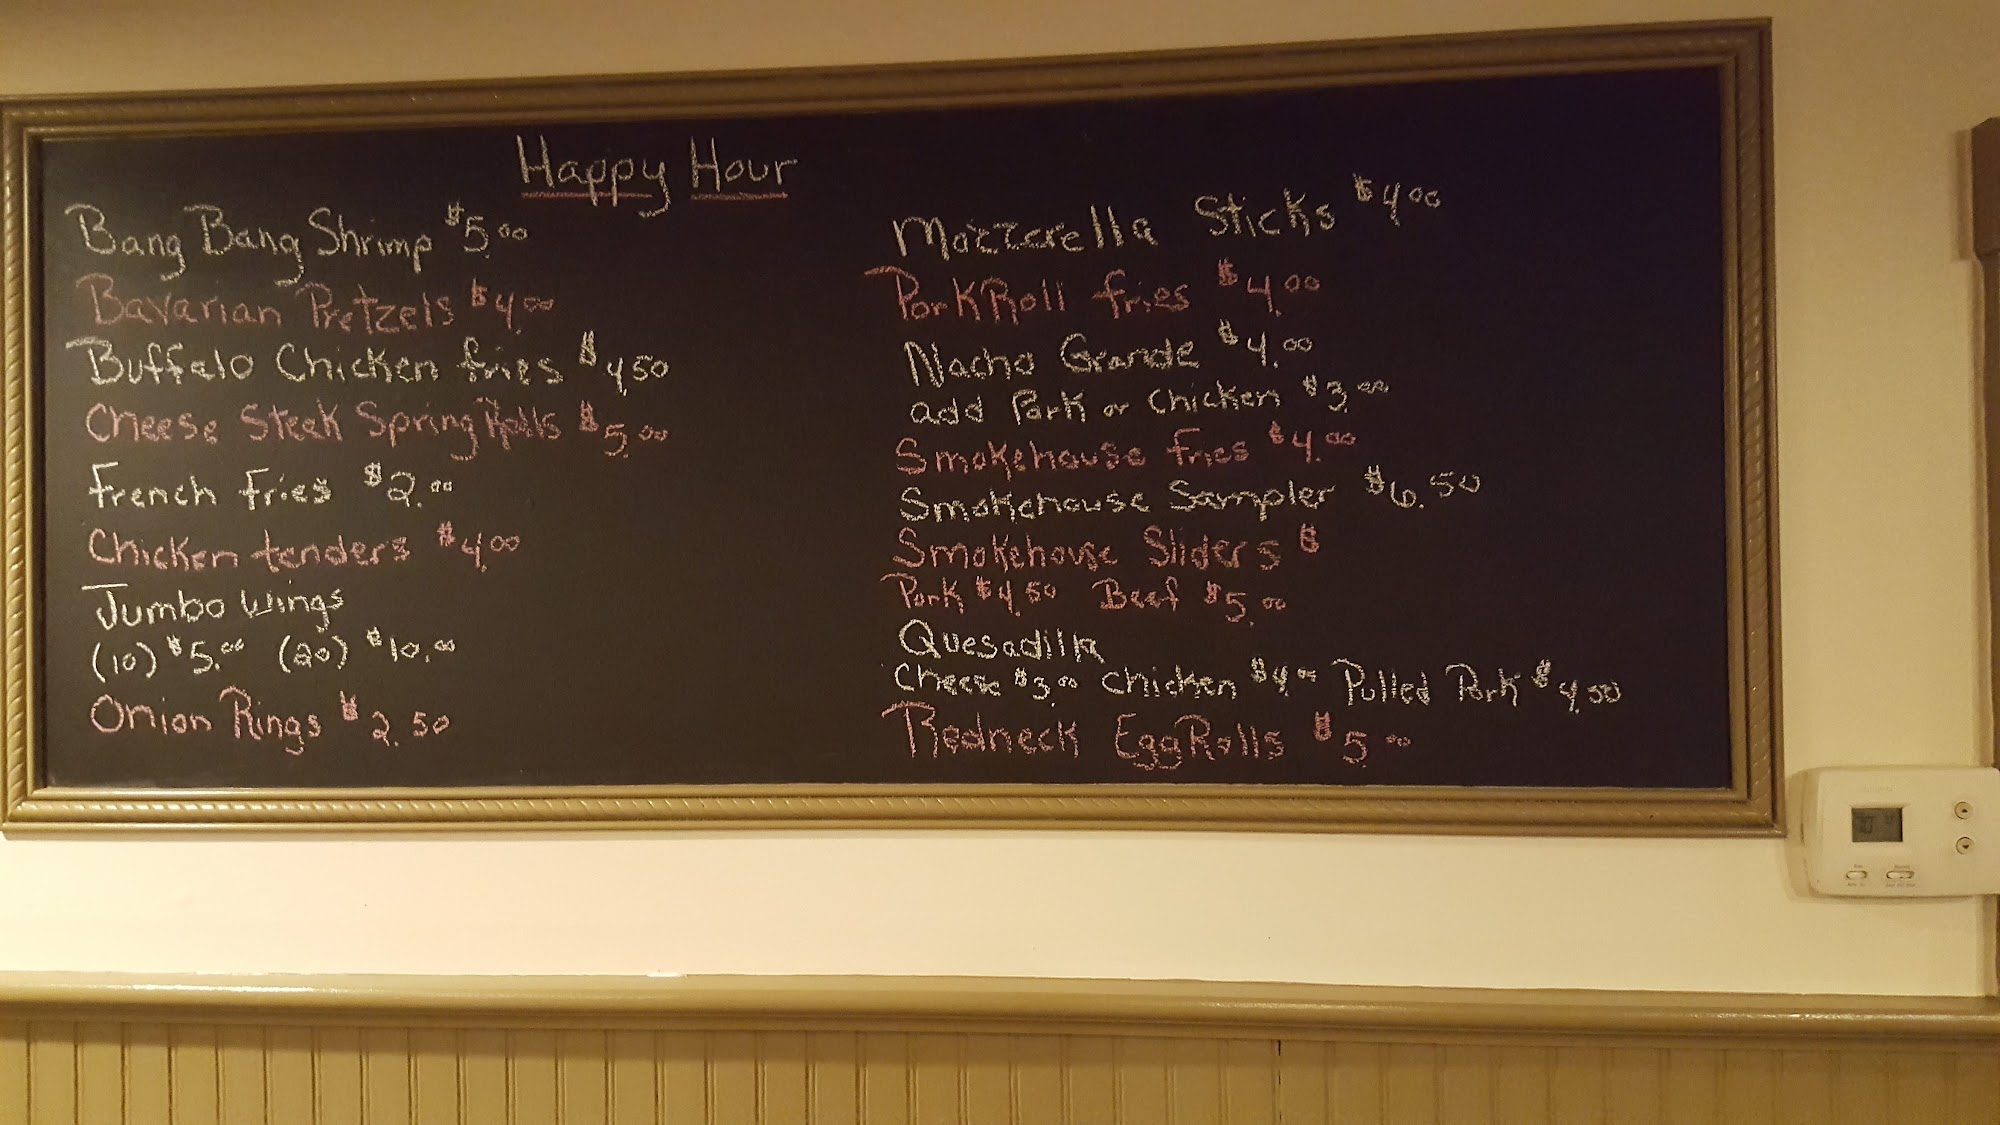 Happy Hour
Bang Bang Shrimp $5.00
Bavarian Pretzels $4.00
Buffalo Chicken fries $4.50
Cheese Steak Spring Rolls $5.00
French Fries $2.00
Chicken tenders $4.00
Jumbo Wings
(10) $5.00 (20) $10.00
Onion Rings $2.50
Mozzerella Sticks $4.00
Pork Roll fries $4.00
Nacho Grande $4.00
add Pork or Chicken $3.00
Smokehouse fries $4.00
Smokehouse Sampler $6.50
Smokehouse Sliders $
Pork $4.50 Beef $5.00
Quesadilla
Cheese $3.00 Chicken $4.00 Pulled Pork $4.00
Redneck EggRolls $5.00